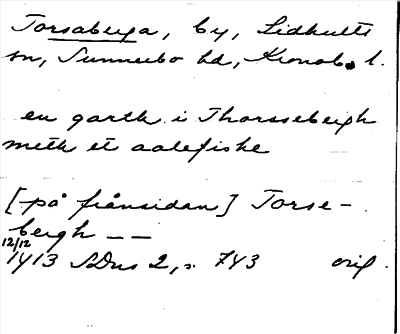 Torsaberga, by, Lidhults
sn, Sunnerbo hd, Kronob. l.
en garth i Thorssebergh
meth et aalefiske
[på frånsidan] Torse-
bergh — —
12/12
1413 SDns 2, s. 743 orig.